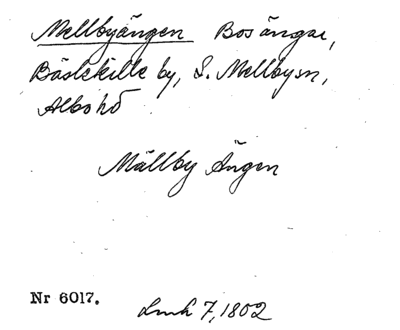 Mellbyängen Bosängar,
Bästekille by, S. Mellby sn,
Albo hd
Mällby Ängen
Nr 6017.
Lmk 7, 1802